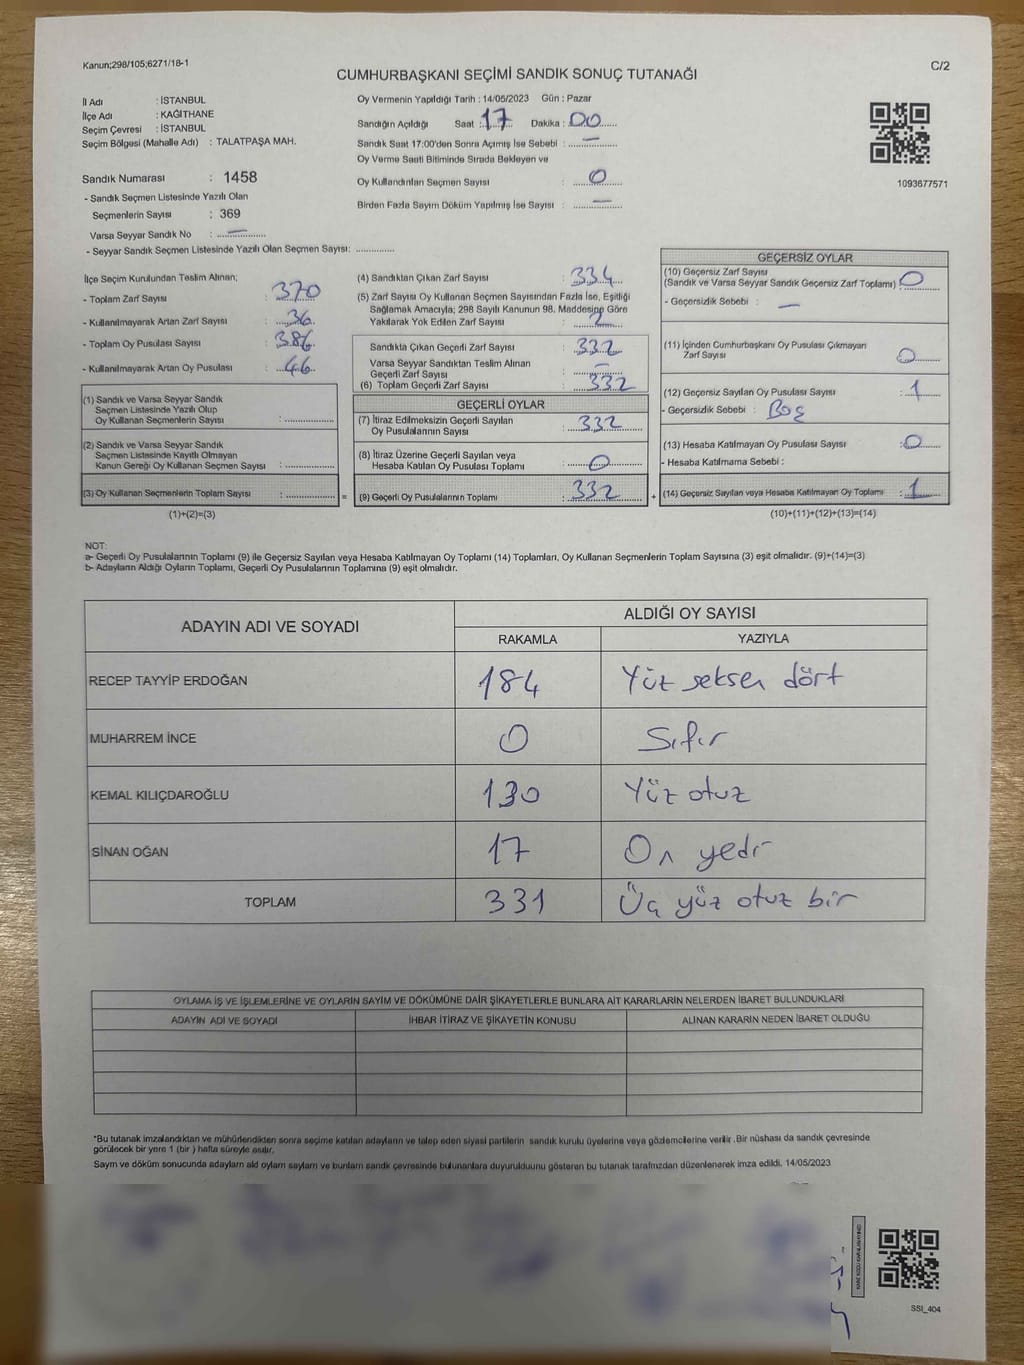 Kanun;298/105;6271/18-1
C/2
CUMHURBAŞKANI SEÇİMİ SANDIK SONUÇ TUTANAĞI
İl Adı : İSTANBUL
İlçe Adı : KAĞITHANE
Seçim Çevresi : İSTANBUL
Seçim Bölgesi (Mahalle Adı) : TALATPAŞA MAH.
Sandık Numarası : 1458
- Sandık Seçmen Listesinde Yazılı Olan
Seçmenlerin Sayısı : 369
Varsa Seyyar Sandık No : —
- Seyyar Sandık Seçmen Listesinde Yazılı Olan Seçmen Sayısı: ..............
Oy Vermenin Yapıldığı Tarih : 14/05/2023 Gün : Pazar
Sandığın Açıldığı Saat : 17 Dakika : 00
Sandık Saat 17:00'den Sonra Açımış İse Sebebi : —
Oy Verme Saati Bitiminde Sırada Bekleyen ve
Oy Kullandırılan Seçmen Sayısı : 0
Birden Fazla Sayım Döküm Yapılmış İse Sayısı : —
1093677571
İlçe Seçim Kurulundan Teslim Alınan;
- Toplam Zarf Sayısı : 370
- Kullanılmayarak Artan Zarf Sayısı : 36
- Toplam Oy Pusulası Sayısı : 386
- Kullanılmayarak Artan Oy Pusulası : 46
(1) Sandık ve Varsa Seyyar Sandık
Seçmen Listesinde Yazılı Olup
Oy Kullanan Seçmenlerin Sayısı : ..............
(2) Sandık ve Varsa Seyyar Sandık
Seçmen Listesinde Kayıtlı Olmayan
Kanun Gereği Oy Kullanan Seçmen Sayısı : ..............
(3) Oy Kullanan Seçmenlerin Toplam Sayısı : .............. =
(1)+(2)=(3)
(4) Sandıktan Çıkan Zarf Sayısı : 334
(5) Zarf Sayısı Oy Kullanan Seçmen Sayısından Fazla İse, Eşitliği
Sağlamak Amacıyla; 298 Sayılı Kanunun 98. Maddesine Göre
Yakılarak Yok Edilen Zarf Sayısı : 2
Sandıkta Çıkan Geçerli Zarf Sayısı : 332
Varsa Seyyar Sandıktan Teslim Alınan
Geçerli Zarf Sayısı : —
(6) Toplam Geçerli Zarf Sayısı : 332
GEÇERLİ OYLAR
(7) İtiraz Edilmeksizin Geçerli Sayılan
Oy Pusulalarının Sayısı : 332
(8) İtiraz Üzerine Geçerli Sayılan veya
Hesaba Katılan Oy Pusulası Toplamı : 0
(9) Geçerli Oy Pusulalarının Toplamı : 332 +
GEÇERSİZ OYLAR
(10) Geçersiz Zarf Sayısı
(Sandık ve Varsa Seyyar Sandık Geçersiz Zarf Toplamı) : 0
- Geçersizlik Sebebi : —
(11) İçinden Cumhurbaşkanı Oy Pusulası Çıkmayan
Zarf Sayısı : 0
(12) Geçersiz Sayılan Oy Pusulası Sayısı : 1
- Geçersizlik Sebebi : Boş
(13) Hesaba Katılmayan Oy Pusulası Sayısı : 0
- Hesaba Katılmama Sebebi :
(14) Geçersiz Sayılan veya Hesaba Katılmayan Oy Toplamı : 1
(10)+(11)+(12)+(13)=(14)
NOT:
a- Geçerli Oy Pusulalarının Toplamı (9) ile Geçersiz Sayılan veya Hesaba Katılmayan Oy Toplamı (14) Toplamları, Oy Kullanan Seçmenlerin Toplam Sayısına (3) eşit olmalıdır. (9)+(14)=(3)
b- Adayların Aldığı Oyların Toplamı, Geçerli Oy Pusulalarının Toplamına (9) eşit olmalıdır.
ADAYIN ADI VE SOYADI
ALDIĞI OY SAYISI
RAKAMLA YAZIYLA
RECEP TAYYİP ERDOĞAN 184 Yüz seksen dört
MUHARREM İNCE 0 Sıfır
KEMAL KILIÇDAROĞLU 130 Yüz otuz
SİNAN OĞAN 17 On yedi
TOPLAM 331 Üç yüz otuz bir
OYLAMA İŞ VE İŞLEMLERİNE VE OYLARIN SAYIM VE DÖKÜMÜNE DAİR ŞİKAYETLERLE BUNLARA AİT KARARLARIN NELERDEN İBARET BULUNDUKLARI
ADAYIN ADI VE SOYADI İHBAR İTİRAZ VE ŞİKAYETİN KONUSU ALINAN KARARIN NEDEN İBARET OLDUĞU
*Bu tutanak imzalandıktan ve mühürlendikten sonra seçime katılan adayların ve talep eden siyasi partilerin sandık kurulu üyelerine veya gözlemcilerine verilir .Bir nüshası da sandık çevresinde
görülecek bir yere 1 (bir ) hafta süreyle asılır.
Sayım ve döküm sonucunda adayların ald oyların sayların ve bunların sandık çevresinde bulunanlara duyurulduunu gösteren bu tutanak tarafımızdan düzenlenerek imza edildi. 14/05/2023
SSI_404